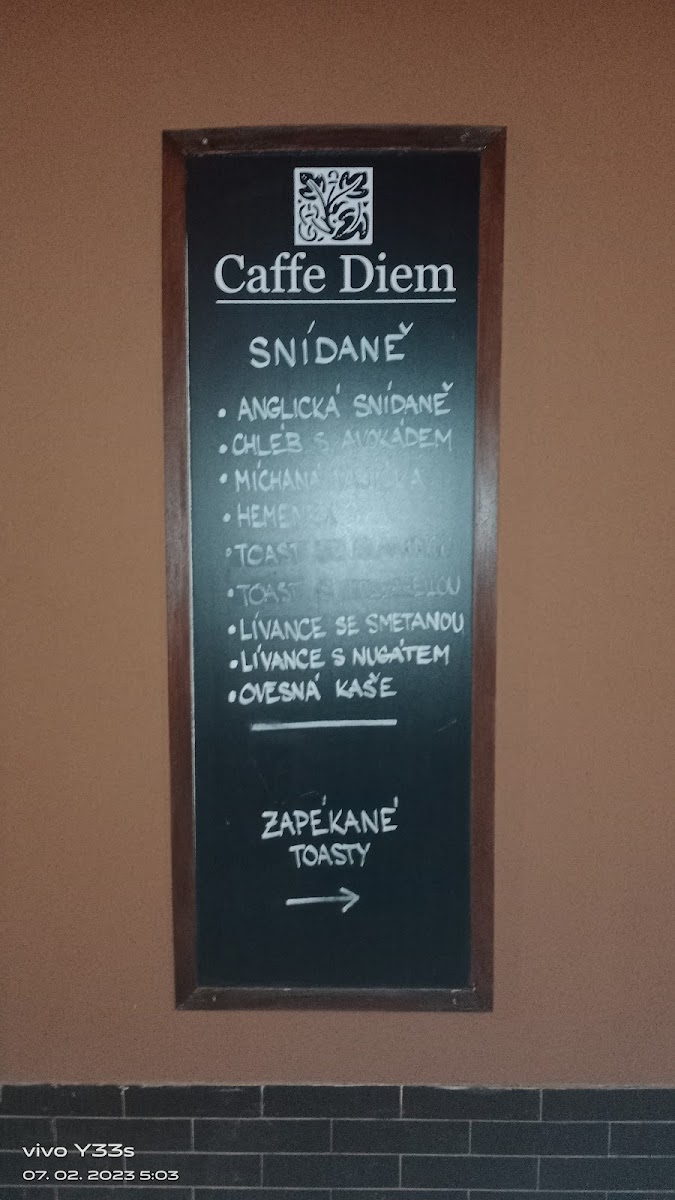 Caffe Diem
SNÍDANĚ
• ANGLICKÁ SNÍDANĚ
• CHLÉB S AVOKÁDEM
• MÍCHANÁ
•
• TOAST
• TOAST
• LÍVANCE SE SMETANOU
• LÍVANCE S NUGÁTEM
• OVESNÁ KAŠE
ZAPÉKANÉ
TOASTY
→
vivo Y33s
07. 02. 2023 5:03